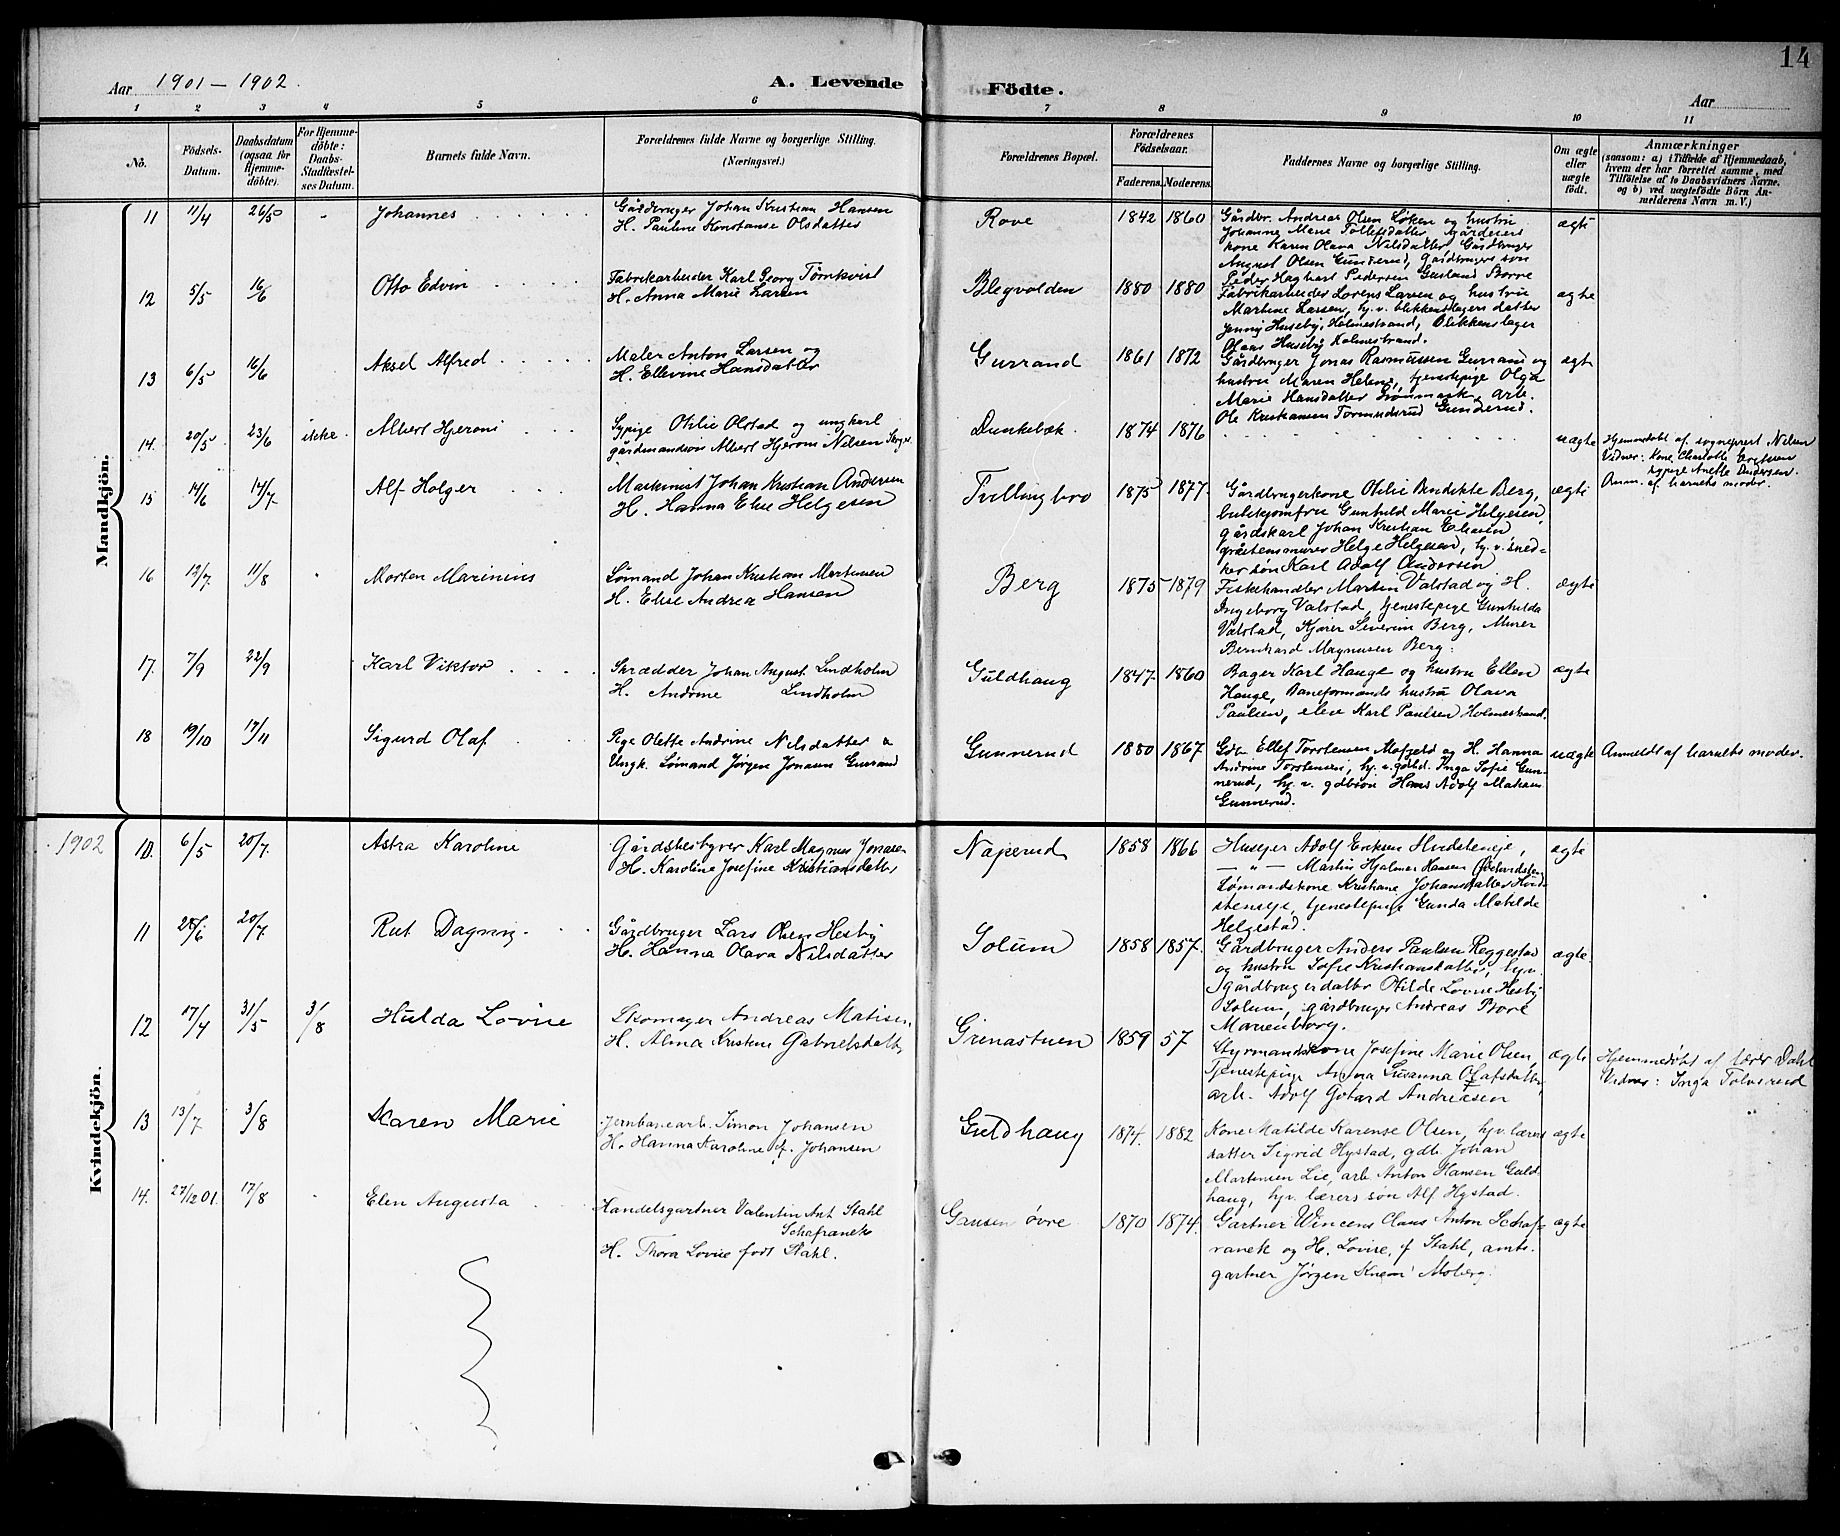 14
Aar 1901 - 1902.
A. Levende Födte.
Aar
1 2 3 4 5 6 7 8 9 10 11
No.
Födsels-Datum.
Daabsdatum (ogsaa for Hjemme-döbte).
For Hjemme-döbte: Daabs-Stadfæstel-ses Datum.
Barnets fulde Navn.
Forældrenes fulde Navne og borgerlige Stilling. (Næringsvei.)
Forældrenes Bopæl.
Forældrenes Födselsaar.
Faderens. Moderens.
Faddernes Navne og borgerlige Stilling.
Om ægte eller uægte födt.
Anmærkninger
(saasom: a) i Tilfælde af Hjemmedaab,
hvem der har forrettet samme, med
Tilföielse af to Daabsvidners Navne,
og b) ved uægtefödte Börn An-
melderens Navn m. V.)
Mandkjön.
11 11/4 26/5 - Johannes
Gårdbruger Johan Kristian Hansen
H. Pauline Konstanse Olsdatter
Rove 1842 1860
Gårdbr. Andreas Olsen Løken og hustru
Johanne Marie Tollefsdatter, gårdeiers
kone Karen Olava Nilsdatter, Gårdbruger
August Olsen Gunnerud, gårdbrugers søn
Peder Haghart Pedersen Gusland Borre
ægte
12 5/5 16/6 Otto Edvin
Fabrikarbeider Karl Georg Törnkvist
H. Anna Marie Larsen
Blegvolden 1880 1880
Fabrikarbeider Lorens Larsen og hustru
Martine Larsen, hj. v. blikkenslagers datter
Jenny Huseby, Holmestrand, Blikkenslager
Olaus Huseby Holmestrand.
ægte
13 6/5 16/6 Aksel Alfred
Maler Anton Larsen og
H. Ellevine Hansdatter
Gurrand 1861 1872
Gårdbruger Jonas Rasmussen Gurrand og
hustru Maren Helene, tjenestepige Olga
Marie Hansdatter, arb.
Ole Kristiansen Gunderud.
ægte
14. 20/5. 23/6 ikke. Albert Hjeroni
Sypige Otilie Olstad og ungkarl
gårdmandsøn Albert Hjeroni Nilsen
Dunkebæk. 1874 1876
uægte
Hjemmedøbt af sogneprest Nilsen
Vidner: Kone Charlotte Eriksen
sypige Anette Andersen.
Anm. af barnets moder.
15 14/6 14/7 Alf Holger
Maskinist Johan Kristian Andersen
H. Hanna Elise Helgesen
Tvillingbro 1875 1877.
Gårdbrugerkone Otilie Bendikte Berg,
butikjomfru Gunhild Marie Helgesen,
gårdskarl Johan Kristian Eliasen
gråstensmurer Helge Helgesen, hj. v. sned-
ker søn Karl Adolf Andersen
ægte
16 12/7 11/8 Morten Marinius
Lømand Johan Kristian Martinsen
H. Elise Andrea Hansen
Berg 1875 1879
Fiskehandler Martin Valstad og H.
Ingeborg Valstad, tjenestepige Gunhilda
Valstad, Kjører Severin Berg, Murer
Bernhard Magnusen Berg.
ægte
17. 7/9 22/9 Karl Viktor
Skrædder Johan August Lindholm
H. Andrine Lindholm
Guldhaug 1847. 1860
Bager Karl Hauge og hustru Ellen
Hauge, Baneformands hustru Olava
Paulsen, elev Karl Paulsen Holmestrand.
ægte
18 19/10 17/11 Sigurd Olaf
Pige Olette Andrine Nilsdatter &
Ungk. Lømand Jørgen Jonasen Gurrand
Gunnerud 1880 1867
Gdbr Ellef Torstensen og H. Hanna
Andrine Torstensen, hj. v. gdbd. Inga Sofie Gun-
nerud, hj. v. gdbsøn Hans Adolf Mathisen
Gunnerud.
uægte
Anmeldt af barnets moder.
1902
Kvindekjön.
10. 6/5 20/7. Astra Karoline
Gårdsbestyrer Karl Magnus Jonasen
H. Karoline Josefine Kristiansdatter
Naperud 1858 1866
Huseier Adolf Eriksen Hvidsteneje,
— " — Martin Hjalmer Hansen
Lømandskone Kristiane Johansdatter Hvid-
steneje, tjenestepige Gunda Matilde
Helgestad.
ægte
11 28/6 20/7 Rut Dagny
Gårdbruger Lars Olsen Hesby
H. Hanna Olava Nilsdatter
Solum 1858 1857.
Gårdbruger Anders Paulsen Reggestad
og hustru Sofie Kristiansdatter, hjv.
gårdbrugerdatter Otilde Lovise Hesby
Solum, gårdbruger Andreas Bore
Marienborg.
ægte.
12 17/4 31/5 3/8 Hulda Lovise
Skomager Andreas Matisen
H. Alma Kristine Gabrielsdatter
Grinastuen 1859 57
Styrmandskone Josefine Marie Olsen,
Tjenestepige Anna Susanna Olafsdatter,
arb. Adolf Gotard Andreasen
ægte
Hjemmedøbt af lærer Dahl
Vidner: Inga Tolvsrud
13 13/7 3/8 Karen Marie
Jernbanearb. Simon Johansen
H. Hanna Karoline f. Johansen
Guldhaug 1874. 1882
Kone Matilde Karense Olsen, hjv. lærers
datter Sigrid Hystad, gdb. Johan
Martinsen Lie, arb. Anton Hansen Guld
haug, hjv. lærers søn Alf Hystad.
ægte
14. 27/12 01. 17/8 - Elen Augusta
Handelsgartner Valentin Ant. Stahl
Schafranek
H. Thora Lovise født Stahl.
Gausen øvre 1870 1874.
Gartner Wincens Claus Anton Schaf-
ranek og H. Lovise, f Stahl, amts.
gartner Jörgen Moberg.
ægte